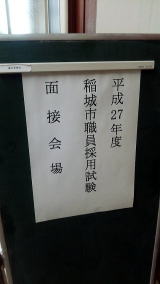 平成27年度
稲城市職員採用試験
面接会場